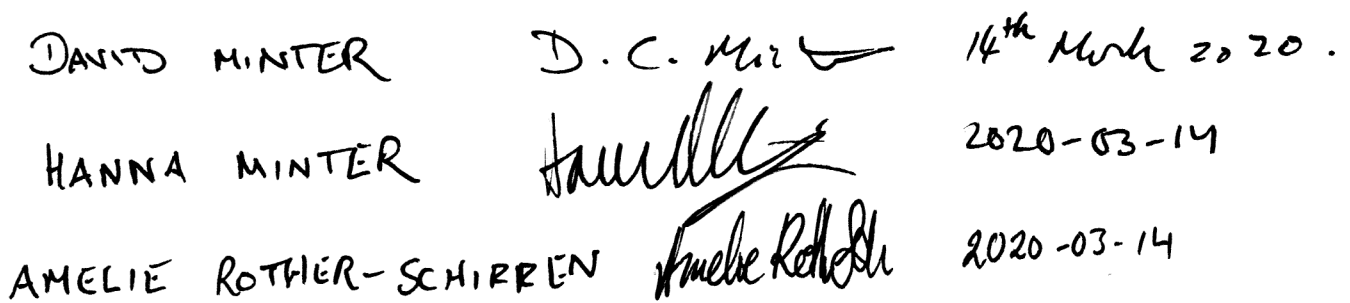 DAVID MINTER D. C. 14th March 2020.
HANNA MINTER 2020-03-14
AMELIE ROTHER-SCHIRREN Amelie 2020-03-14